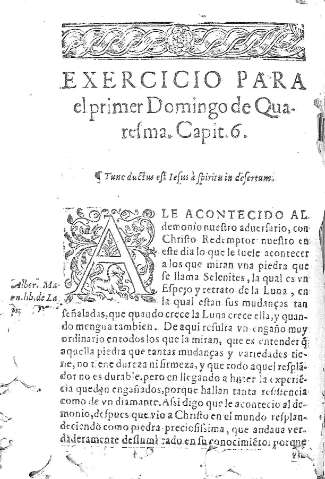 EXERCICIO PARA
el primer Domingo de Qua-
resma. Capit. 6.
¶ Tunc ductus est Iesus à spiritu in desertum.
A LE ACONTECIDO AL
demonio nuestro aduersario, con
Christo Redemptor nuestro en
este dia lo que le suele acontecer
a los que miran vna piedra que
se llama Selenites, la qual es vn
Espejo y retrato de la Luna, en
la qual estan sus mudanças tan
señaladas, que quando crece la Luna crece ella, y quan-
do mengua tambien. De aqui resulta vn engaño muy
ordinario en todos los que la miran, que es entender q̃
aquella piedra que tantas mudanças y variedades tie-
ne, no tiene dureza ni firmeza, y que todo aquel resplã-
dor no es durable. pero en llegando a hazer la experiẽ
cia quedan engañados, porque hallan tanta resistencia
como de vn diamante. Assi digo que le acontecio al de-
monio, despues que vio a Christo en el mundo resplan-
deciendo como piedra preciosissima, que andaua ver-
daderamente deslumbrado en su conocimiẽto, porque
Alber. Ma
lib. de La